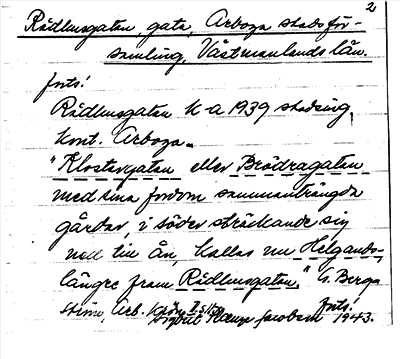 2
Rådhusgatan, gata, Arboga stadsför-
samling, Västmanlands län.
forts!
Rådhusgatan K-a 1939 stadsing.
kont. Arboga.
"Klostergatan eller Brödragatan
med sina fordom sammanträngda
gårdar, i söder sträckande sig
ned till ån, kallas nu Helgands-,
längre fram Rådhusgatan." G. Berg-
ström, Arb. krön. II s.
forts!
1943.